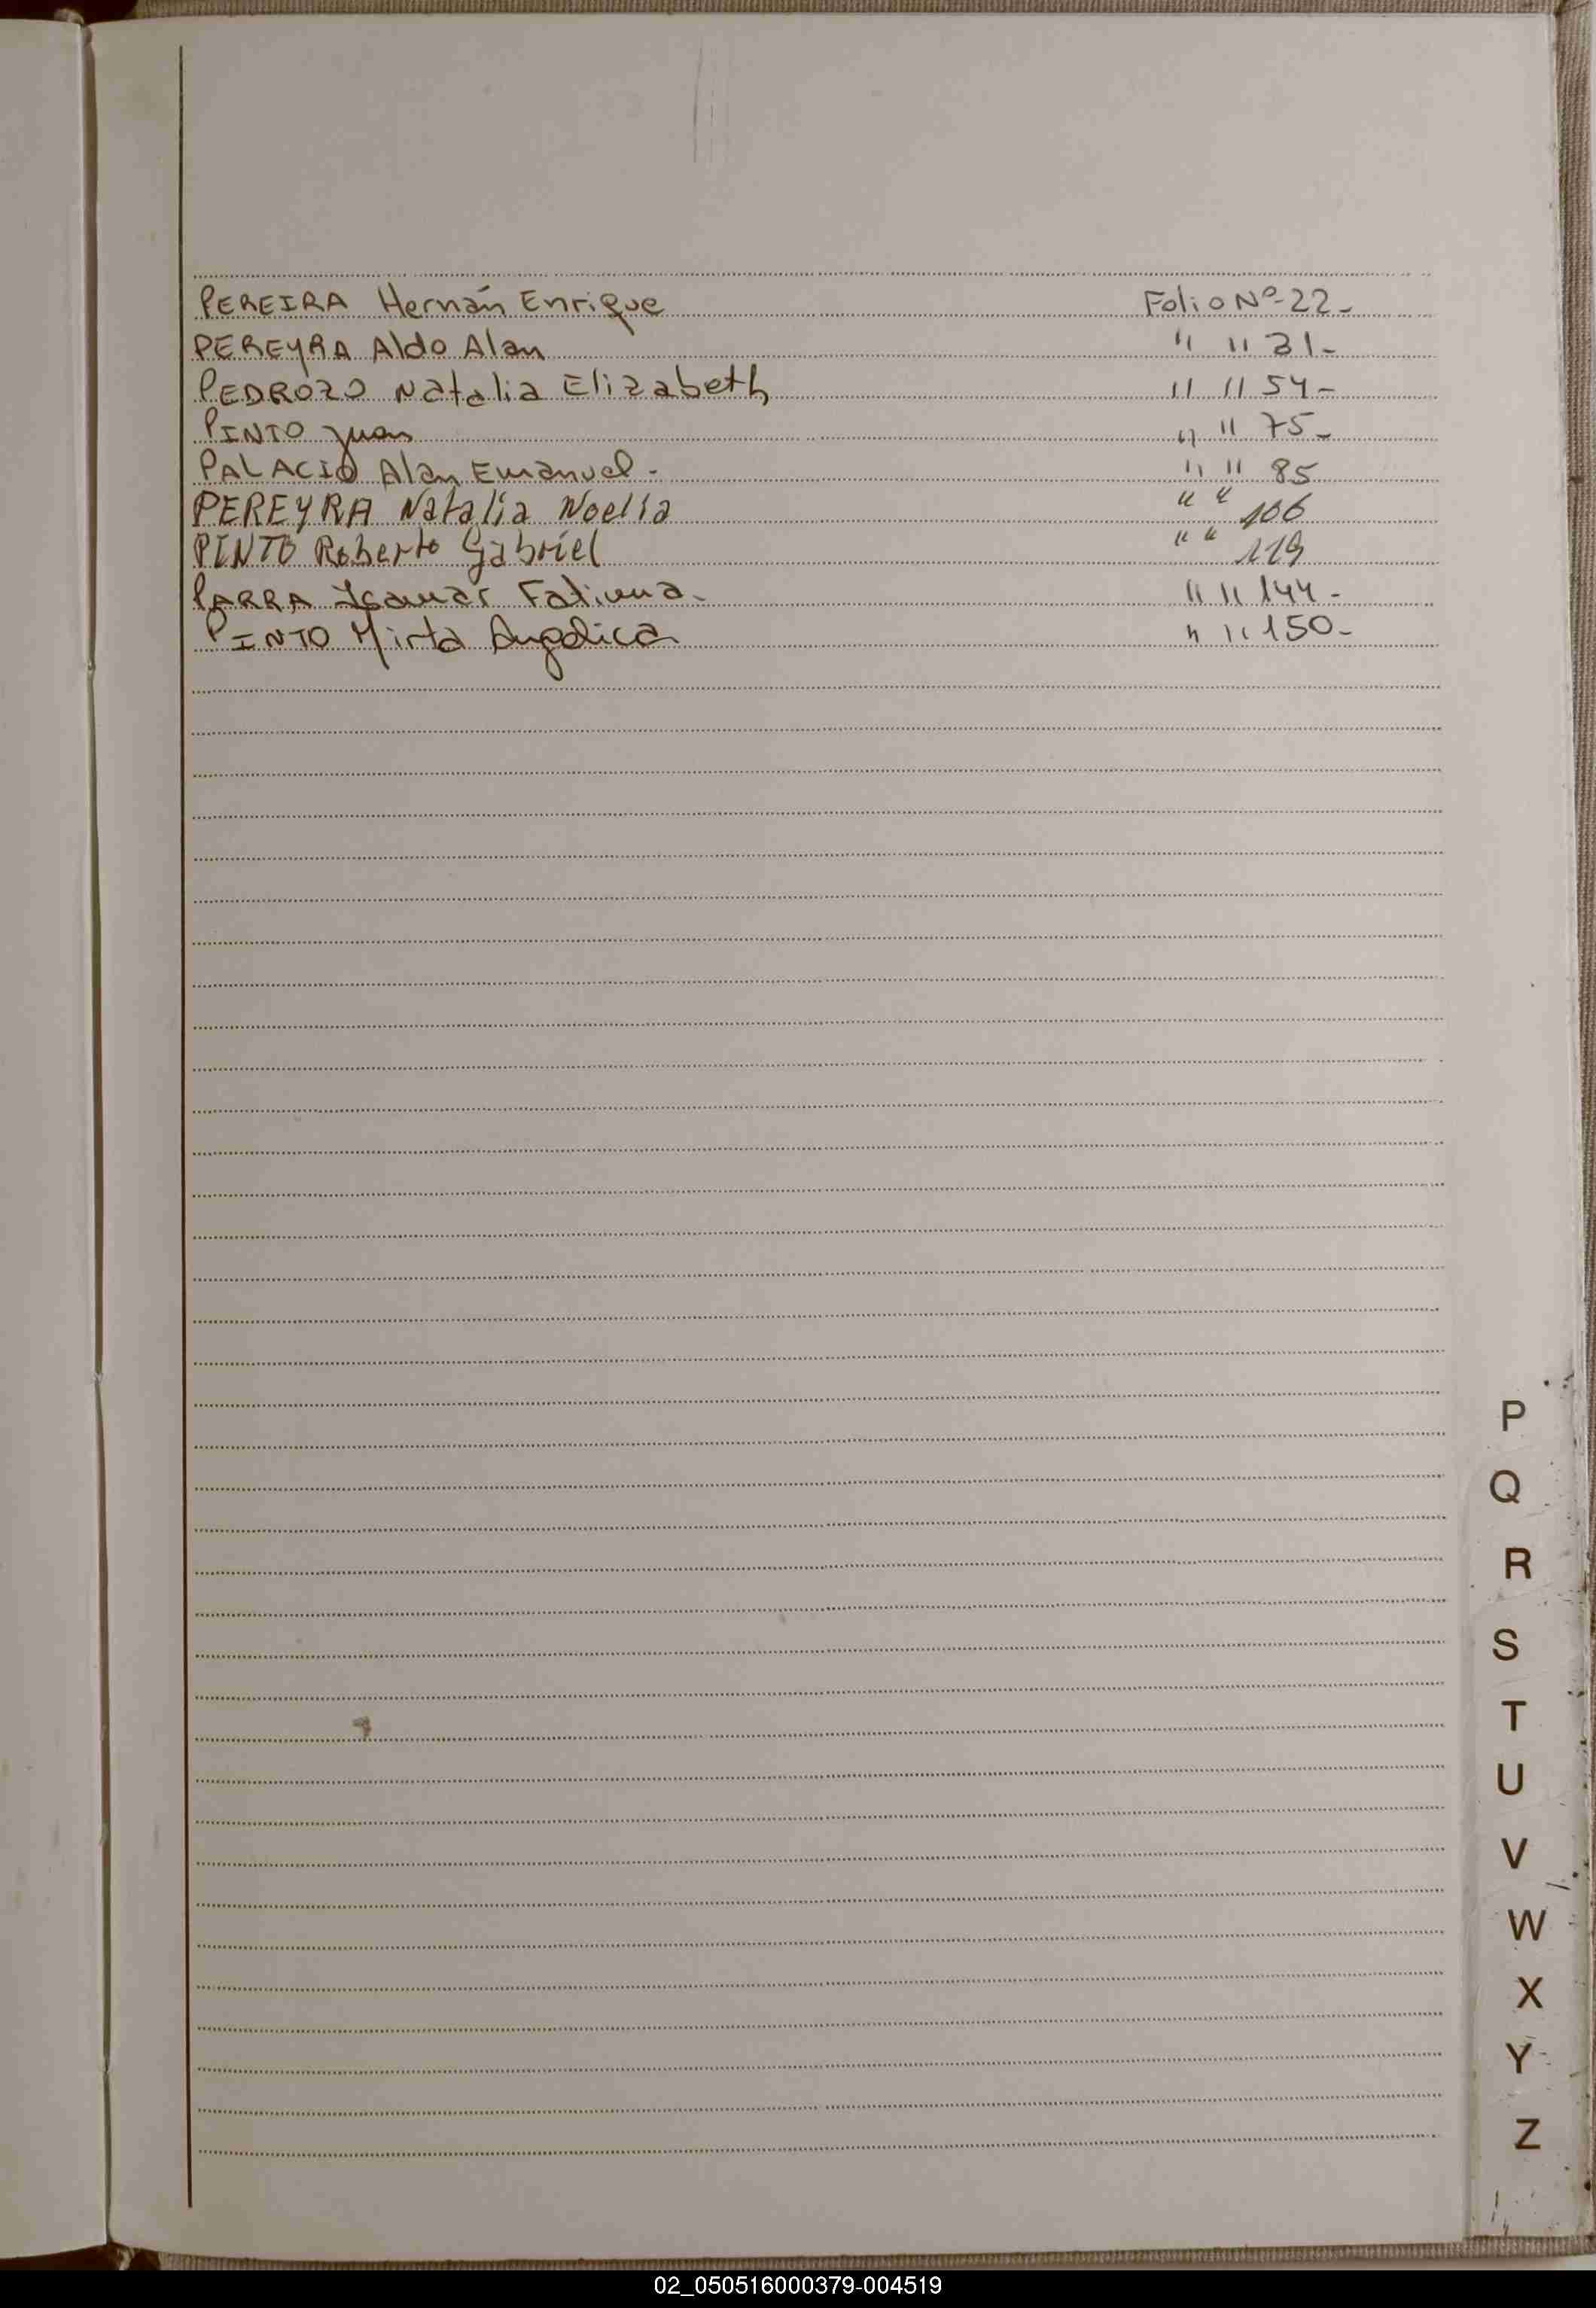 PEREIRA Hernán Enrique Folio Nº-22-
PEREYRA Aldo Alan " " 31-
PEDROZO Natalia Elizabeth " " 54-
PINTO Juan " " 75-
PALACIO Alan Emanuel- " " 85
PEREYRA Natalia Noelia " " 106
PINTO Roberto Gabriel " " 119
PARRA Fatima- " " 144-
PINTO Mirta Angelica " " 150-
P
Q
R
S
T
U
V
W
X
Y
Z
02_050516000379-004519